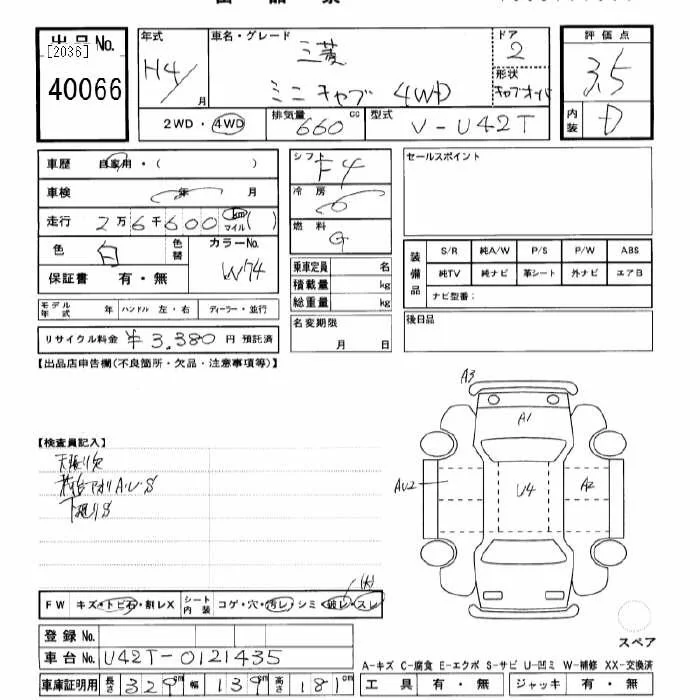 出品No.
[2036]
40066
年式
H4/
月
車名・グレード
三菱
ミニキャブ 4WD
ドア
2
形状
評価点
3.5
内装
D
2WD・4WD
排気量
660
cc
型式
V-U42T
車歴 自家用・( )
車検 年 月
走行 2万6千600 km マイル ( )
色
白
色替
カラーNo.
W74
保証書 有・無
シフト
F4
冷房
燃料
G
乗車定員 名
積載量 kg
総重量 kg
名変期限
月 日
セールスポイント
装備品
S/R 純A/W P/S P/W ABS
純TV 純ナビ 革シート 外ナビ エアB
ナビ型番:
後日品
モデル年式 年 ハンドル 左・右 ディーラー・並行
リサイクル料金 ¥3,380円 預託済
【出品店申告欄(不良箇所・欠品・注意事項等)】
【検査員記入】
天張り欠
荷台アオリA・U・S
下廻りS
A3
A1
AU2
U4
A2
FW キズ・トビ石・割レX シート内装 コゲ・穴・汚レ・シミ・破レ・スレ
スペア
登録No.
車台No. U42T-0121435
A-キズ C-腐食 E-エクボ S-サビ U-凹ミ W-補修 XX-交換済
車庫証明用 長さ 329cm 幅 139cm 高さ 181cm
工具 有・無 ジャッキ 有・無